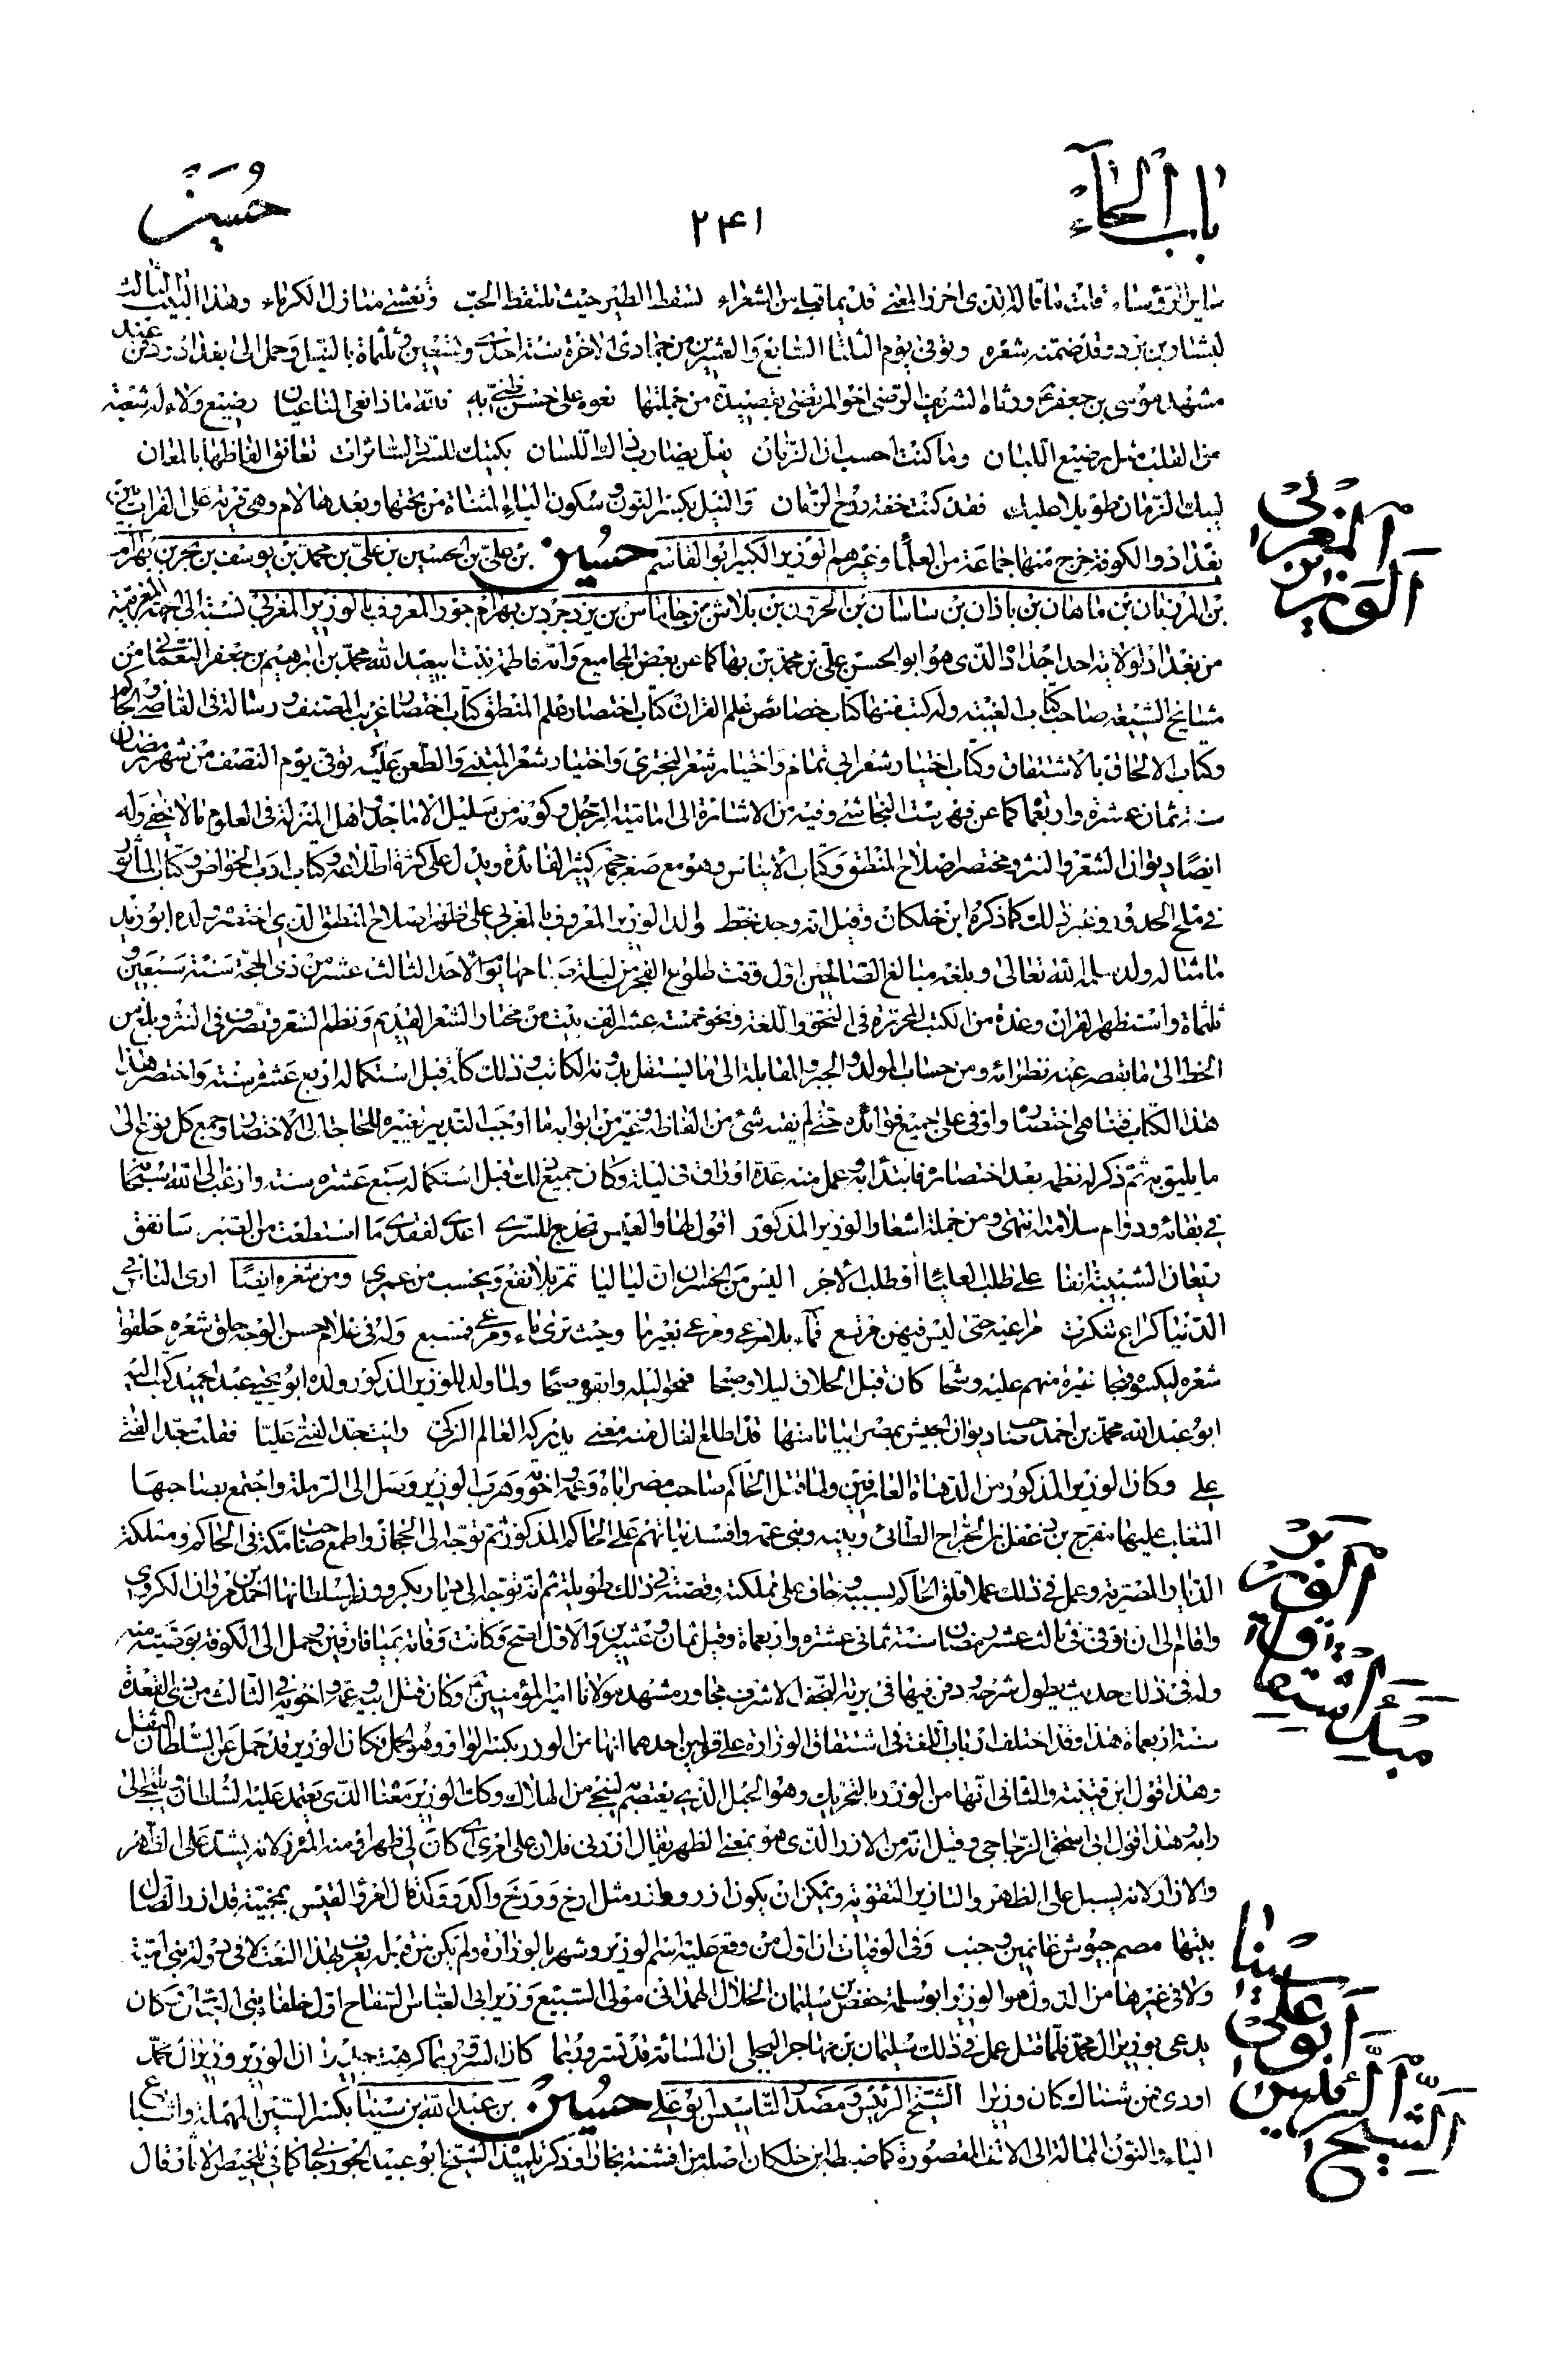 باب الحاء
۲۴۱
حسین
سایر الرؤساء قلت ما قاله الذی احرز المعنی قدیما قیاس الشعراء لسقط الطیر حیث یلتقط الحب و تغشی منازل الکرماء وهذا البیت الثالث
لبشار بن برد وقد ضمنه شعره وتوفی یوم الثلثا السابع والعشرین من جمادی الاخرة سنة احدی وتسعین وثلثماة بالنیل وحمل الی بغداد ودفن عند
مشهد موسی بن جعفر ع ورثاه الشریف الرضی اخو المرتضی بقصیدة من جملتها نعوه علی حسن ظنی به فلله ماذا نعی الناعیان رضیع ولاء له شعبة
من القلب مثل رضیع اللبان وما کنت احسب ان الزمان یفل مضارب ذاك اللسان بکیتك للشرد السائرات تعانق الفاظها بالمعان
لیبك الزمان طویلا علیك فقد کنت خفة روح الزمان والنیل بکسر النون وسکون الیاء المثناة من تحتها وبعدها لام وهی قریة علی الفرات بین
بغداد والکوفة خرج منها جماعة من العلماء وغیرهم الوزیر الکبیر ابو القاسم حسین بن علی بن الحسین بن علی بن محمد بن یوسف بن بحر بن بهرام
بن المرزبان بن ماهان بن باذان بن ساسان بن الحرون بن بلاش بن جاماس بن یزدجرد بن بهرام جور المعروف بالوزیر المغربی نسبة الی جهة المغربیة
من بغداد لولایة احد اجداده الذی هو ابو الحسن علی بن محمد بن بها کما عن بعض المجامیع وامه فاطمة بنت ابیعبد الله محمد بن ابرهیم بن جعفر النعمانی من
مشایخ الشیعة صاحب کتاب الغیبة وله کتب منها کتاب خصائص علم القران کتاب اختصار علم المنطق کتاب اختصار غریب المصنف ورسالة فی القاضی والحاکم
وکتاب الالحاق بالاشتقاق وکتاب اختیار شعر ابی تمام واختیار شعر البحتری واختیار شعر المتنبی والطعن علیه توفی یوم النصف من شهر رمضان
سنة ثمان عشرة واربعماة کما عن فهرست النجاشی وفیه من الاشارة الی امامیة الرجل وکونه من سلیل الاماجد اهل المنزلة فی العلوم ما لا یخفی وله
ایضا دیوان الشعر والنثر ومختصر اصلاح المنطق وکتاب الایناس وهو مع صغر حجمه کثیر الفائدة ویدل علی کثرة اطلاعه وکتاب ادب الخواص وکتاب المأثور
فی ملح الخدور وغیر ذلك کما ذکره ابن خلکان وقیل انه وجد بخط والد الوزیر المعروف بالمغربی علی ظهر اصلاح المنطق الذی اختصره ولده ابو زید
ما مثاله ولد سلمه الله تعالی وبلغه مبالغ الصالحین اول وقت طلوع الفجر من لیلة صباحها یوم الاحد الثالث عشر من ذی الحجة سنة سبعین و
ثلثماة واستظهر القران وعدة من الکتب المجردة فی النحو واللغة ونحو خمسة عشر الف بیت من مختار الشعر القدیم ونظم الشعر وتصرف فی النثر وبلغ من
الخط الی ما یقصر عنه نظرائه ومن حساب المولد والجبر والمقابلة الی ما یستقل بدونه الکاتب وذلك کله قبل استکماله اربع عشرة سنة واختصر هذا
هذا الکتاب فتناهی اختصاره واوفی علی جمیع فوائده حتی لم یفته شئ من الفاظه وغیر من ابوابه ما اوجب التدبیر تغییره للحاجة الی الاختصار وجمع کل نوع الی
ما یلیق به ثم ذکر له نظمه بعد اختصاره فابتدا به وعمل منه عدة اوراق فی لیلة وکان جمیع ذلك قبل استکماله سبع عشرة سنة وارغب الی الله سبحانه
فی بقائه ودوام سلامته انتهی ومن جملة اشعار الوزیر المذکور اقول لها والعیس تحدج للسری اعدی لفقدی ما استطعت من الصبر سانفق
ریعان الشبیبة انفا علی طلب العلیاء او طلب الاجر الیس من الخسران ان لیالیا تمر بلا نفع وتحسب من عمری ومن شعره ایضا اری الناس فی
الدنیا کراع تنکرت مراعیه حتی لیس فیهن مرتع فماء بلا مرعی ومرعی بغیر ما وحیث تری ماء ومرعی فمسبع وله فی غلام حسن الوجه حلق شعره حلقوا
شعره لیکسوه قبحا غیرة منهم علیه وشحا کان قبل الحلاق لیلا وصبحا فمحوا لیله وابقوه صبحا ولما ولد للوزیر المذکور ولده ابو یحیی عبد الحمید کتب الیه
ابو عبد الله محمد بن احمد صاحب دیوان الجیش بمصر ابیاتا منها قد اطلع الفال منه معنی یدرکه العالم الزکی رایت جد الفتی علیا فقلت جد الفتی
علی وکان الوزیر المذکور من الدهاة العارفین ولما قتل الحاکم صاحب مصر اباه وعمه واخویه وهرب الوزیر وصل الی الرملة واجتمع بصاحبها
المتغلب علیها مفرج بن دغفل بن الجراح الطائی وبنیه وبنی عمه وافسد نیاتهم علی الحاکم المذکور ثم توجه الی الحجاز واطمع صاحب مکة فی الحاکم ومملکة
الدیار المصریة وعمل فی ذلك عملا قلق الحاکم بسببه وخاف علی مملکته وقصته فی ذلك طویلة ثم انه توجه الی دیار بکر ووزر لسلطانها احمد بن مروان الکردی
واقام الی ان توفی فی ثالث عشر رمضان سنة ثمانی عشرة واربعماة وقیل ثمان وعشرین والاول اصح وکانت وفاته بمیافارقین وحمل الی الکوفة بوصیة منه
وله فی ذلك حدیث یطول شرحه ودفن فیها فی تربة النجف الاشرف مجاور مشهد مولانا امیر المؤمنین ع وکان قتل ابیه وعمه واخویه فی الثالث من ذی القعدة
سنة اربعماة هذا وقد اختلف ارباب اللغة فی اشتقاق الوزارة علی قولین احدهما انها من الوزر بکسر الواو وهو الحمل فکان الوزیر قد حمل عن السلطان الثقل
وهذا قول ابن قتیبة والثانی انها من الوزر بالتحریك وهو الجبل الذی یعتصم به لینجی من الهلاك وکذلك الوزیر معناه الذی یعتمد علیه السلطان ویلتجئ الی
رایه وهذا قول ابی اسحق الزجاجی وقیل انه من الازر الذی هو بمعنی الظهر یقال ازرنی فلان علی امری ای کان لی ظهرا ومنه المئزر لانه یشد علی الظهر
والازار لانه یسبل علی الظهر والتازیر التقویة ویمکن ان یکون ازر ووزر مثل ارخ وورخ واکد ووکد قال امرؤ القیس بمحنیة قد ازر الضال
بینها مصم جیوش غانمین وخیب وفی الوفیات ان اول من وقع علیه اسم الوزیر وشهر بالوزارة ولم یکن من قبله یعرف بهذا النعت لا فی دولة بنی امیة
ولا فی غیرها من الدول هو الوزیر ابو سلمة حفص بن سلیمان الخلال الهمدانی مولی السبیع وزیر ابی العباس السفاح اول خلفاء بنی العباس وکان
یدعی بوزیر ال محمد فلما قتل عمل فی ذلك سلیمان بن مهاجر البجلی ان المسائة قد تسر وربما کان السرور بما کرهت جدیرا ان الوزیر وزیر ال محمد
اودی فمن یشناك کان وزیرا الشیخ الرئیس ومصدر التاسیس ابو علی حسین بن عبد الله بن سینا بکسر السین المهملة واشباع
الیاء والنون الممالة الی الالف المقصورة کما ضبطه ابن خلکان اصله من افشنة بخارا وذکر تلمیذه الشیخ ابو عبید الجوزجانی کما فی تلخیص الاثار قال
الوزیر بن المغربی
مبدأ اشتقاق الوزیر
الشیخ الرئیس ابو علی سینا